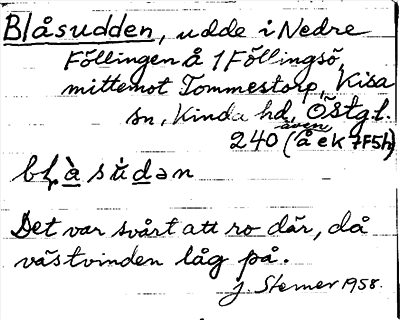 Blåsudden, udde i Nedre
Föllingen å 1 Föllingsö,
mittemot Tommestorp, Kisa
sn, Kinda hd, Östgl.
240 (även å ek 7F5h)
Det var svårt att ro där, då
västvinden låg på.
J. Sterner 1958.